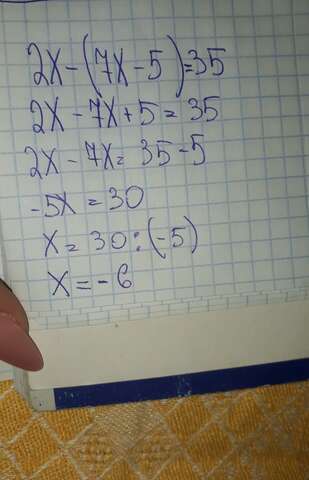 2x-(7x-5)=35
2x-7x+5=35
2x-7x=35-5
-5x=30
x=30:(-5)
x=-6